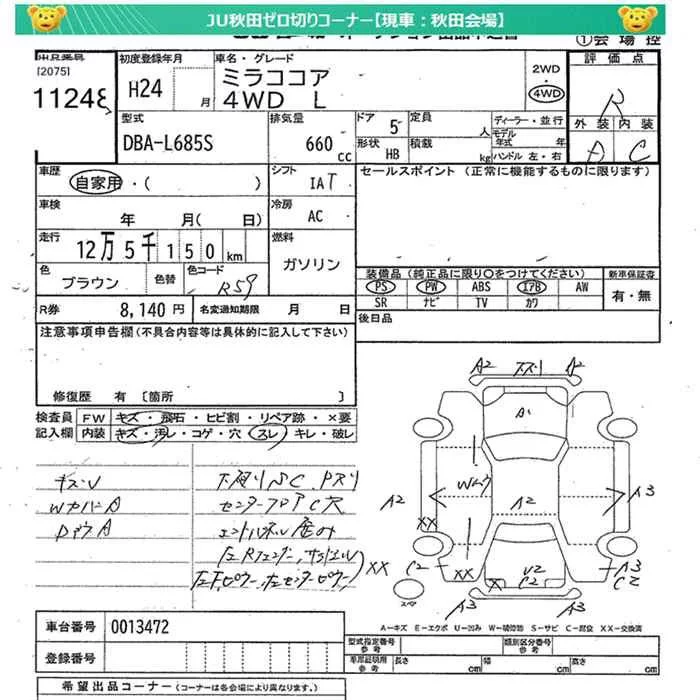 JU秋田ゼロ切りコーナー【現車：秋田会場】
①会場控
[2075]
11248
初度登録年月
H24 月
車名・グレード
ミラココア
4WD L
2WD
・
4WD
評価点
R
外装 内装
A C
型式
DBA-L685S
排気量
660 cc
ドア 5
形状 HB
定員 人
積載 kg
ディーラー・並行
モデル年式 年式
ハンドル 左・右
車歴
自家用・( )
シフト
IAT
セールスポイント (正常に機能するものに限ります)
車検
年 月( 日)
冷房
AC
走行
12万5千150km
燃料
ガソリン
色
ブラウン
色替
色コード
R59
装備品(純正品に限り○をつけてください)
PS PW ABS エアB AW
SR ナビ TV カワ
新車保証書
有・無
R券 8,140円
名変通知期限 月 日
後日品
注意事項申告欄(不具合内容等は具体的に記入して下さい)
修復歴 有 〔箇所 〕
検査員記入欄
FW キズ・飛石・ヒビ割・リペア跡・×要
内装 キズ・汚レ・コゲ・穴・スレ・キレ・破レ
キズU
WカバーA
下廻りSC
センターフロアC穴
XX
A2 下スリ A2
A1
A2
A2
A3
XX
C2
XX
X
U2
C2
A3
C2
A3
A3
スペア
A－キズ E－エクボ U－凹み W－補修跡 S－サビ C－腐食 XX－交換済
車台番号 0013472
登録番号
型式指定番号 参考
類別区分番号 参考
車庫証明用 参考
長さ cm
幅 cm
高さ cm
希望出品コーナー(コーナーは各会場により異なります。)